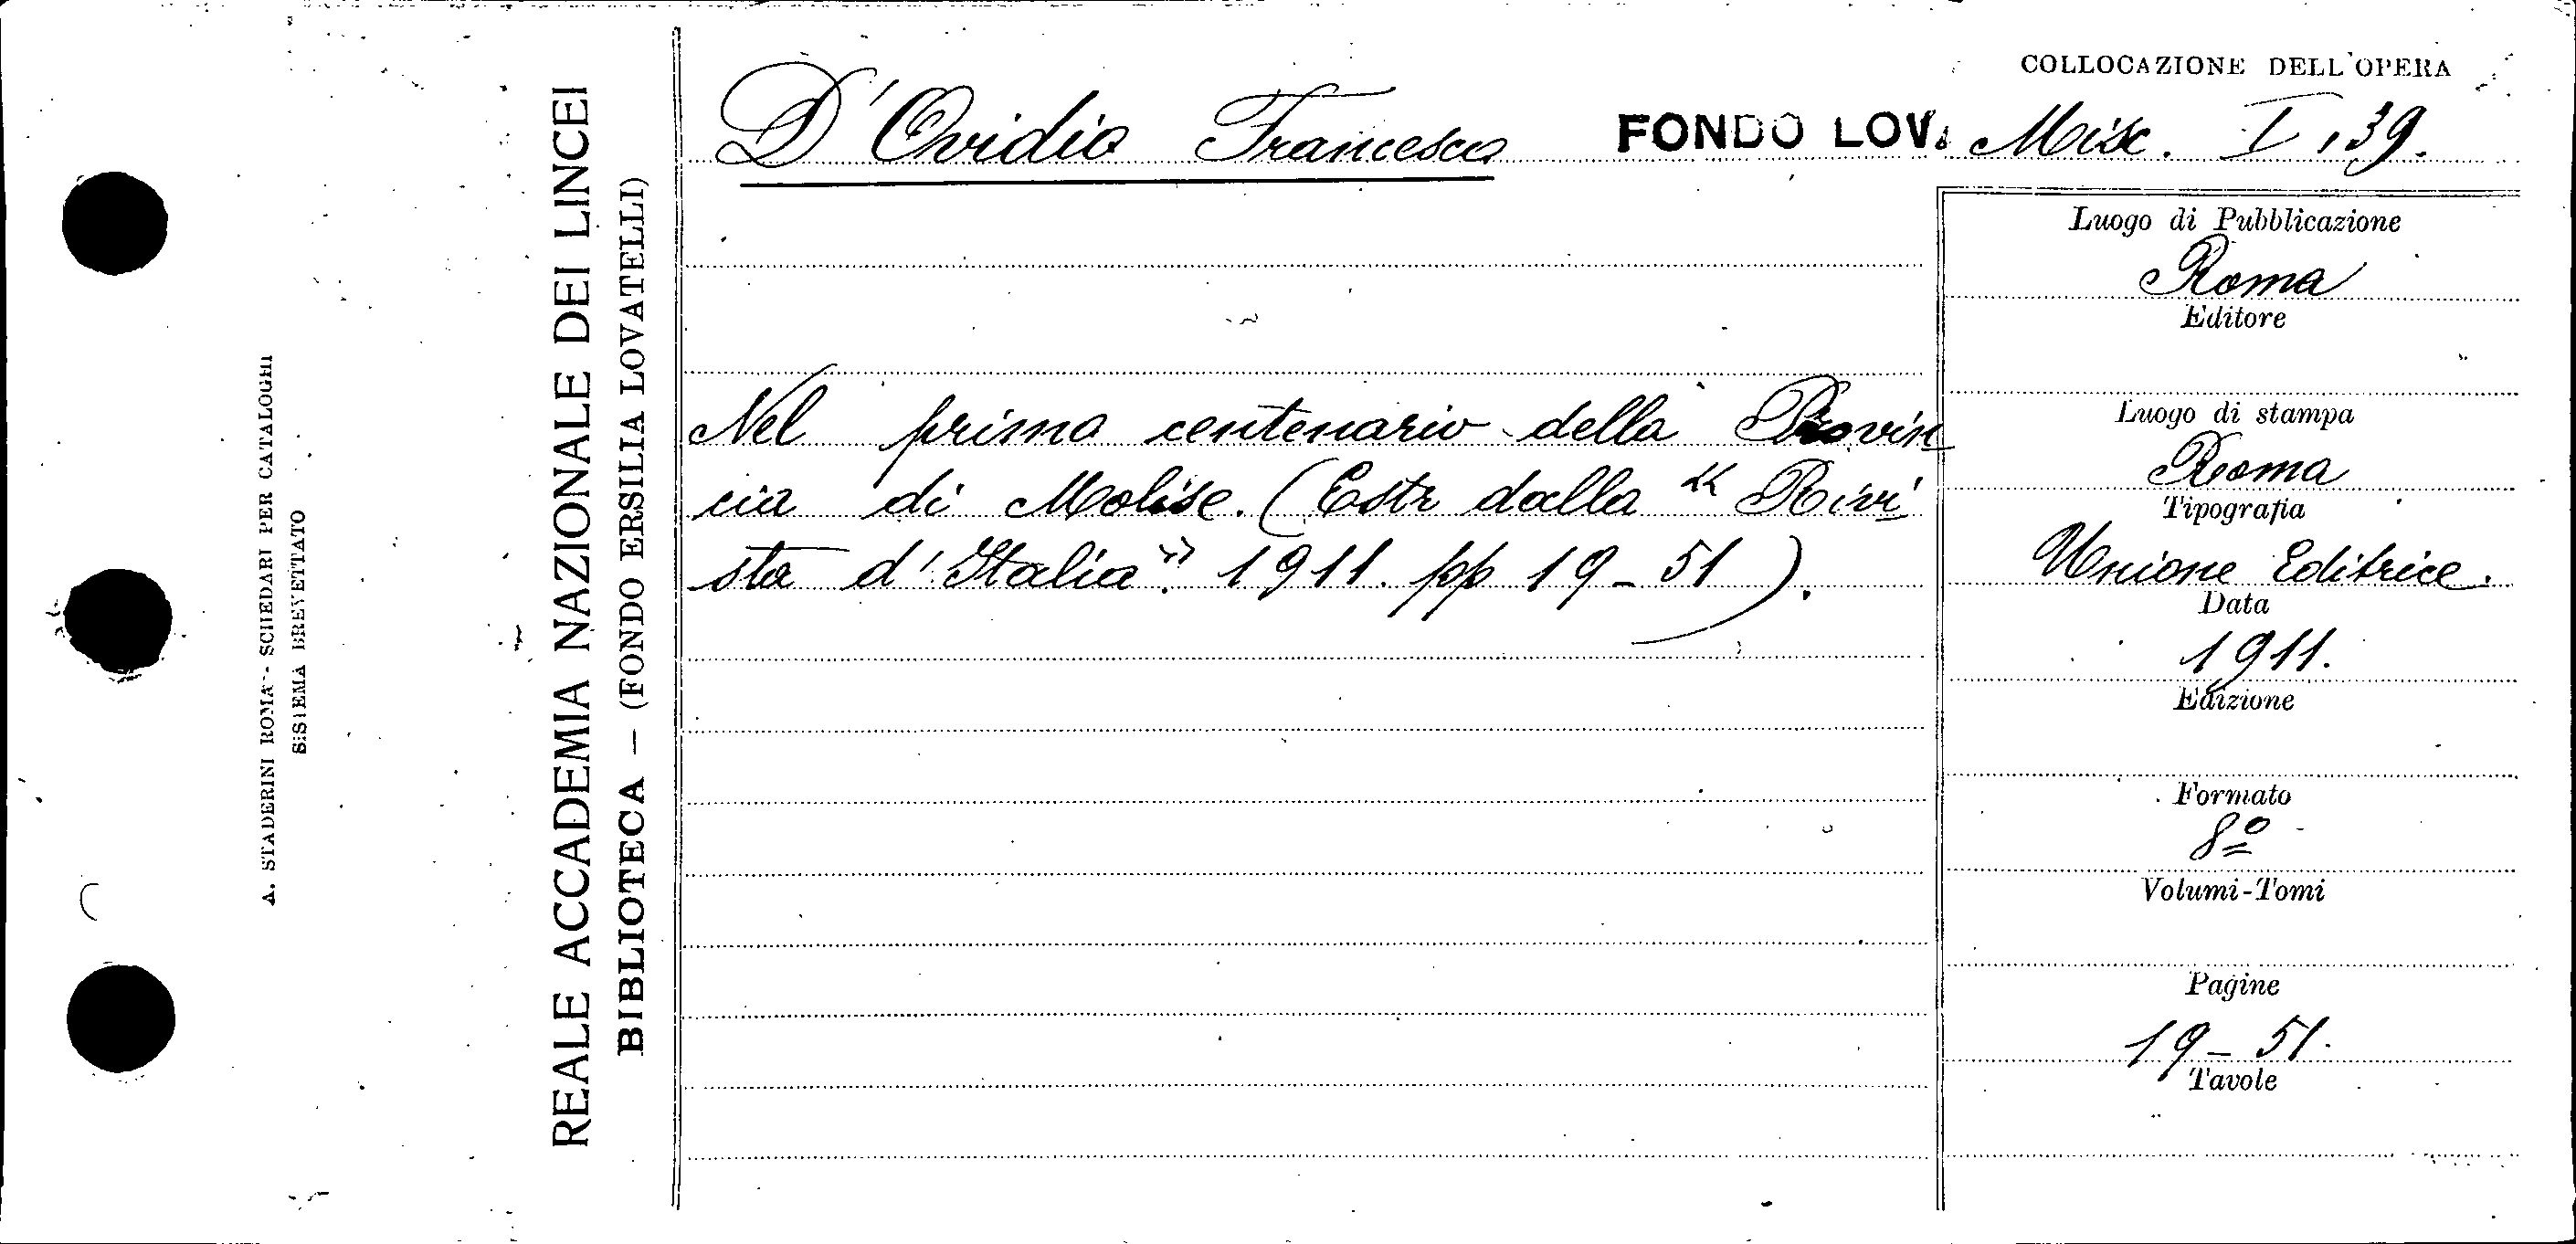 A. STADERINI ROMA - SCHEDARI PER CATALOGHI
SISTEMA BREVETTATO
REALE ACCADEMIA NAZIONALE DEI LINCEI
BIBLIOTECA — (FONDO ERSILIA LOVATELLI)
D'Ovidio Francesco
FONDO LOV.
COLLOCAZIONE DELL'OPERA
Misc. I, 39.
Nel primo centenario della Provin
cia di Molise. (Estr dalla « Rivi
sta d'Italia». 1911. pp 19-51).
Luogo di Pubblicazione
Roma
Editore
Luogo di stampa
Roma
Tipografia
Unione Editrice.
Data
1911.
Edizione
Formato
8º
Volumi-Tomi
Pagine
19-51.
Tavole